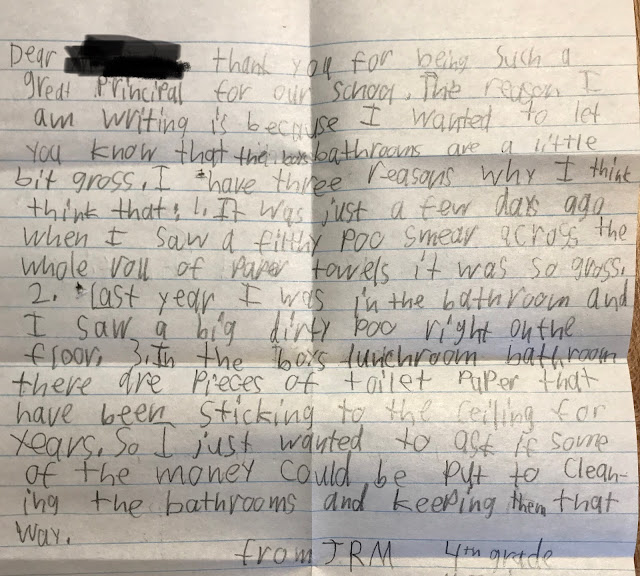 Dear thank you for being such a
great Principal for our school. The reason I
am writing is because I wanted to let
you know that the boys bathrooms are a little
bit gross. I have three reasons why I think
think that: 1. It was just a few days ago
when I saw a filthy Poo smear across the
whole roll of Paper towels it was so gross.
2. Last year I was in the bathroom and
I saw a big dirty Poo right on the
floor. 3. In the boys lunchroom bathroom
there are Pieces of toilet Paper that
have been sticking to the ceiling for
years. So I just wanted to ask if some
of the money could be put to Clean-
ing the bathrooms and keeping them that
way.
from JRM 4th grade